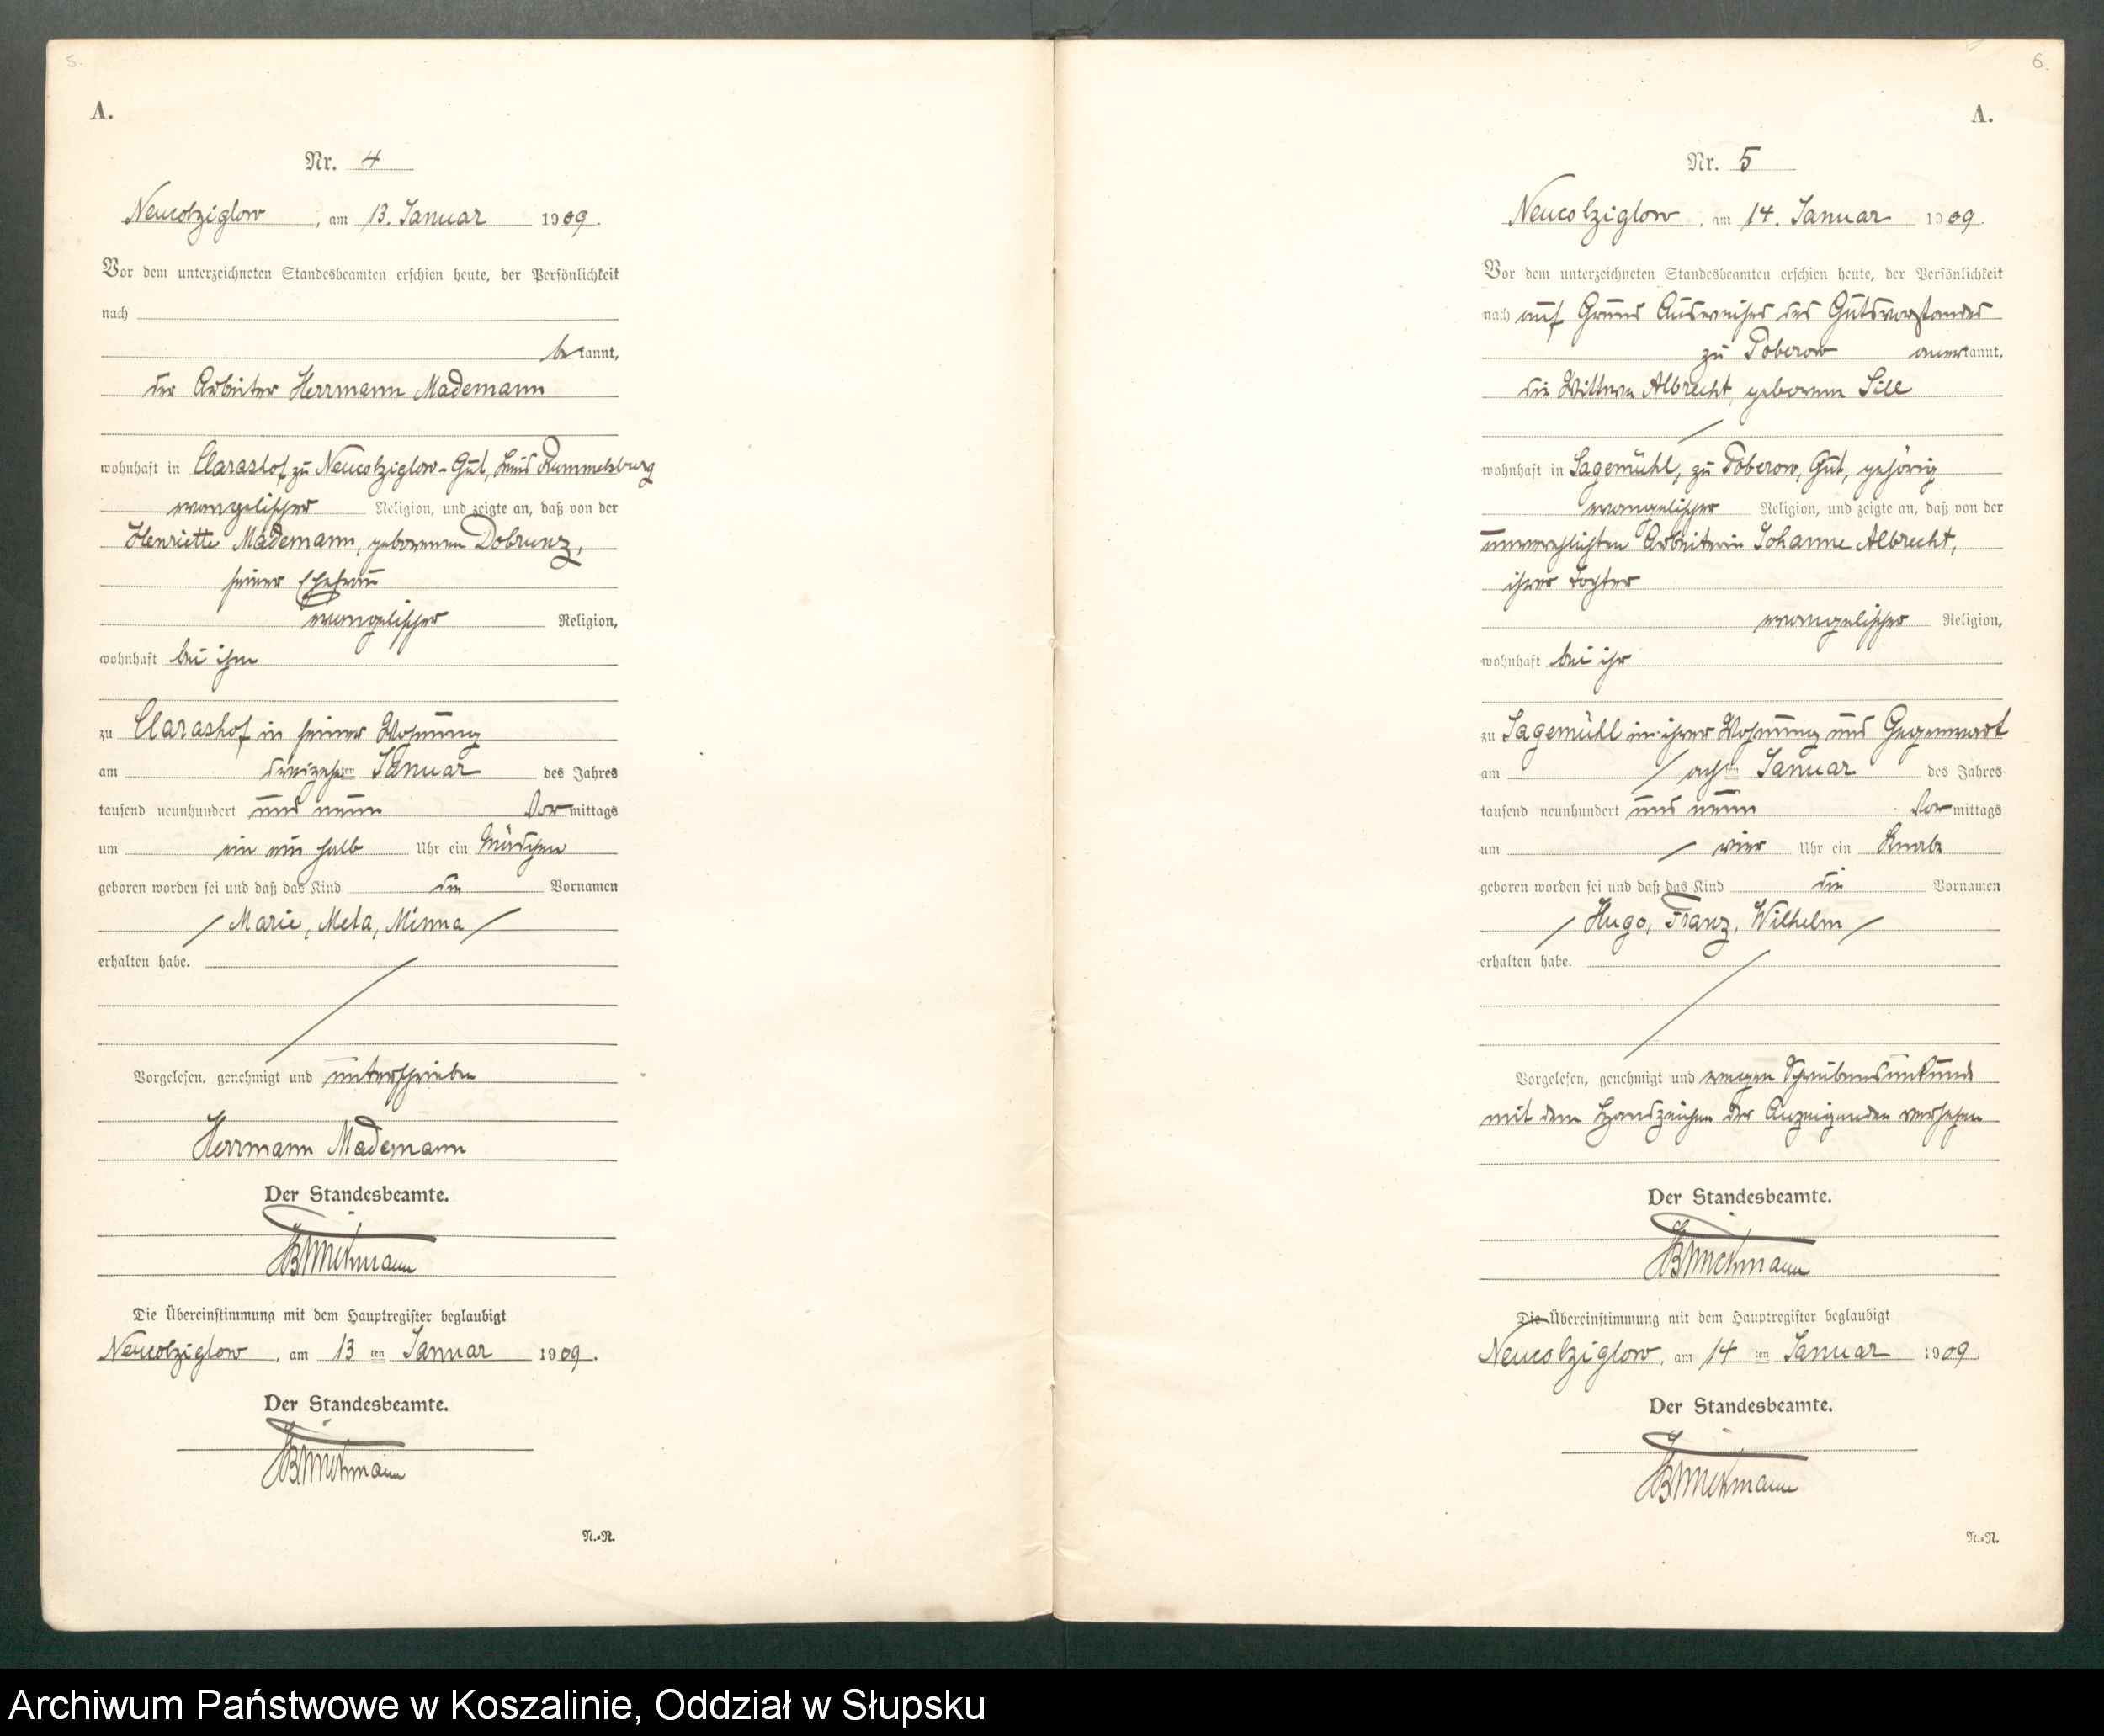 5.
A.
Nr. 4
Neucolziglow, am 13. Januar 1909.
Vor dem unterzeichneten Standesbeamten erschien heute, der Persönlichkeit
nach
bekannt,
der Arbeiter Herrmann Mademann
wohnhaft in Clarashof, zu Neucolziglow-Gut, Kreis Rummelsburg
evangelischer Religion, und zeigte an, daß von der
Henriette Mademann, geborenen Dobrunz,
seiner Ehefrau
evangelischer Religion,
wohnhaft bei ihm
zu Clarashof in seiner Wohnung
am dreizehnten Januar des Jahres
tausend neunhundert und neun Vormittags
um ein ein halb Uhr ein Mädchen
geboren worden sei und daß das Kind die Vornamen
Marie, Meta, Minna
erhalten habe.
Vorgelesen, genehmigt und unterschrieben
Herrmann Mademann
Der Standesbeamte.
Die Übereinstimmung mit dem Hauptregister beglaubigt
Neucolziglow, am 13ten Januar 1909.
Der Standesbeamte.
N.=R.
6.
A.
Nr. 5
Neucolziglow, am 14. Januar 1909.
Vor dem unterzeichneten Standesbeamten erschien heute, der Persönlichkeit
nach auf Grund Ausweises des Gutsvorstandes
zu Poberow anerkannt,
die Wittwe Albrecht, geborene Sill
wohnhaft in Sagemühl, zu Poberow, Gut, gehörig
evangelischer Religion, und zeigte an, daß von der
unverehlichten Arbeiterin Johanne Albrecht,
ihrer Tochter
evangelischer Religion,
wohnhaft bei ihr
zu Sagemühl in ihrer Wohnung und Gegenwart
am achten Januar des Jahres
tausend neunhundert und neun Vormittags
um vier Uhr ein Knabe
geboren worden sei und daß das Kind die Vornamen
Hugo, Franz, Wilhelm
erhalten habe.
Vorgelesen, genehmigt und wegen Schreibensunkunde
mit dem Handzeichen der Anzeigenden versehen
Der Standesbeamte.
Die Übereinstimmung mit dem Hauptregister beglaubigt
Neucolziglow, am 14ten Januar 1909.
Der Standesbeamte.
N.=R.
Archiwum Państwowe w Koszalinie, Oddział w Słupsku